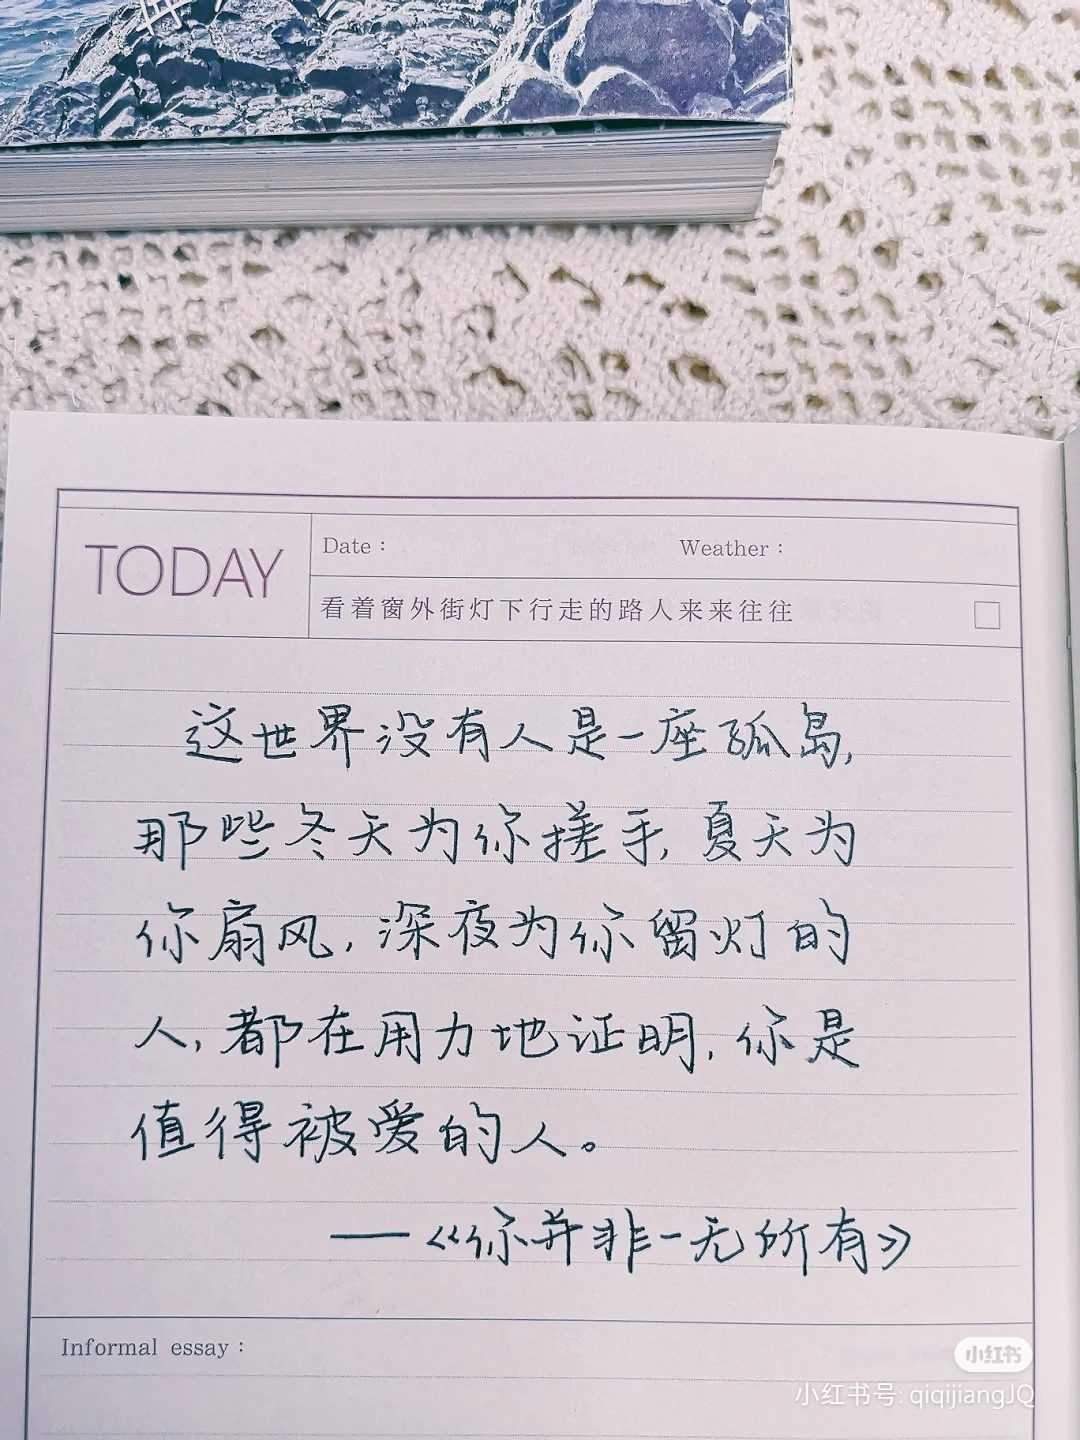 TODAY
Date：
Weather：
看着窗外街灯下行走的路人来来往往
这世界没有人是一座孤岛,
那些冬天为你搓手,夏天为
你扇风,深夜为你留灯的
人,都在用力地证明,你是
值得被爱的人。
——《你并非一无所有》
Informal essay：
小红书
小红书号: qiqijiangJQ